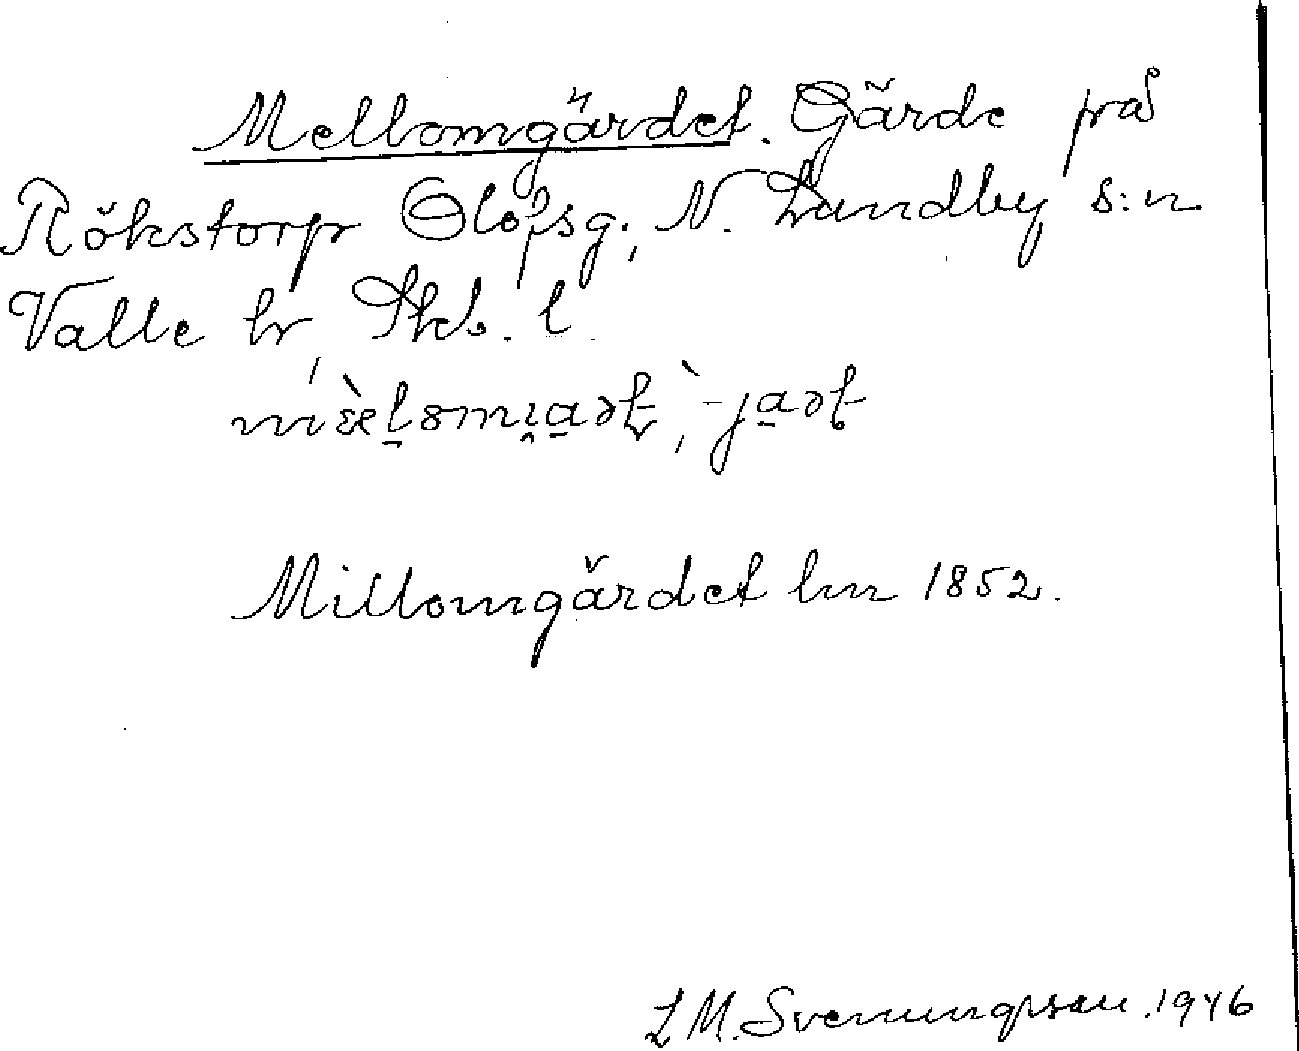 Mellomgärdet. Gärde på
Rökstorp Olofsg., N. Lundby s:n
Valle hr, Skb. l.
Millomgärdet hm 1852.
L M. Svenungsson. 1946